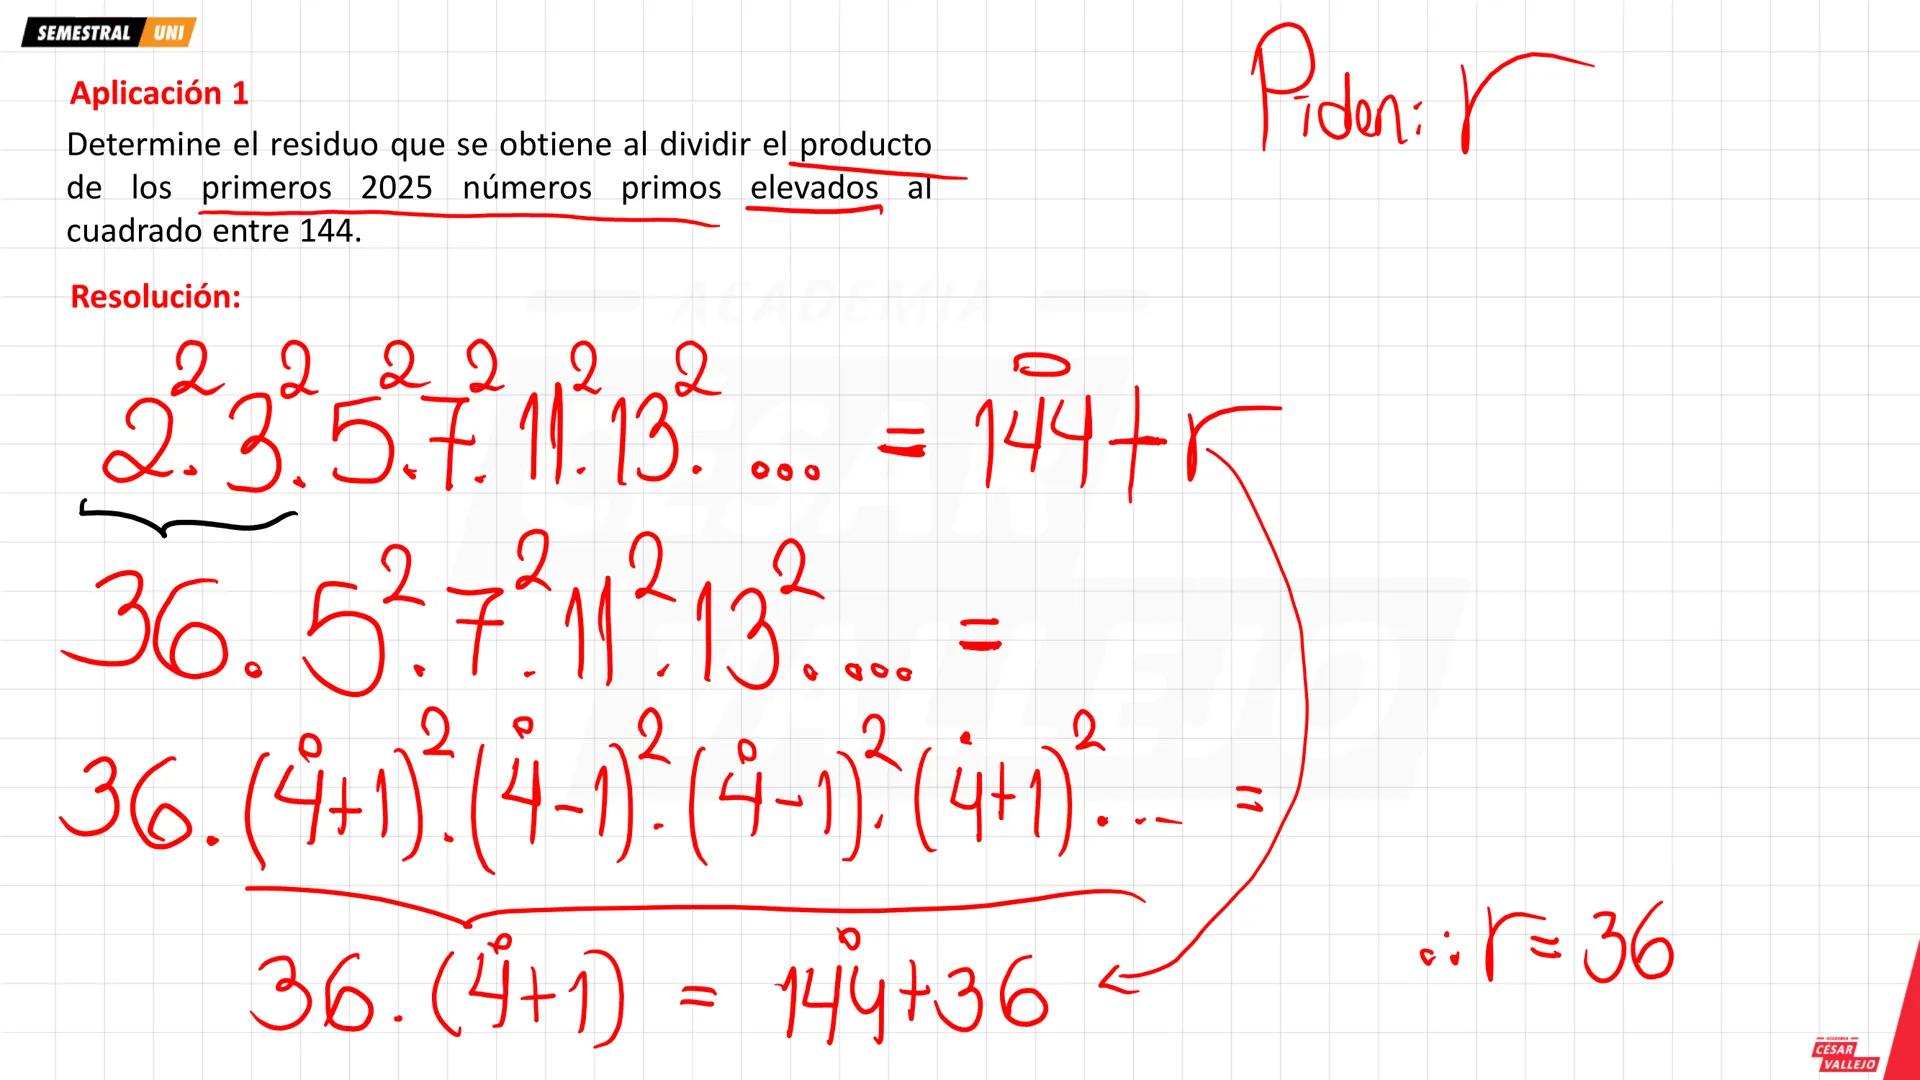 SEMESTRAL UNI
Piden: r
Aplicación 1
Determine el residuo que se obtiene al dividir el producto
de los primeros 2025 números primos elevados al
cuadrado entre 144.
Resolución:
ACADEMIA
CÉSAR
VALLEJO
2².3².5².7².11².13². ... = 144° + r
36.5².7².11².13². ... =
36.(4°+1)².(4°-1)².(4°-1)².(4°+1)². ... =
36.(4°+1) = 144°+36
∴ r = 36
ACADEMIA
CÉSAR
VALLEJO